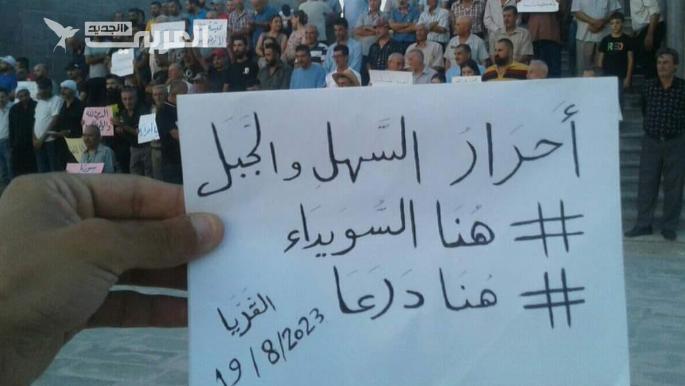 العربي الجديد
أَحرَارُ السَّهلِ والجَّبَل
# هُنَا السُّوَيدَاء
# هُنَا دَرعَا
القريَّا
19/8/2023